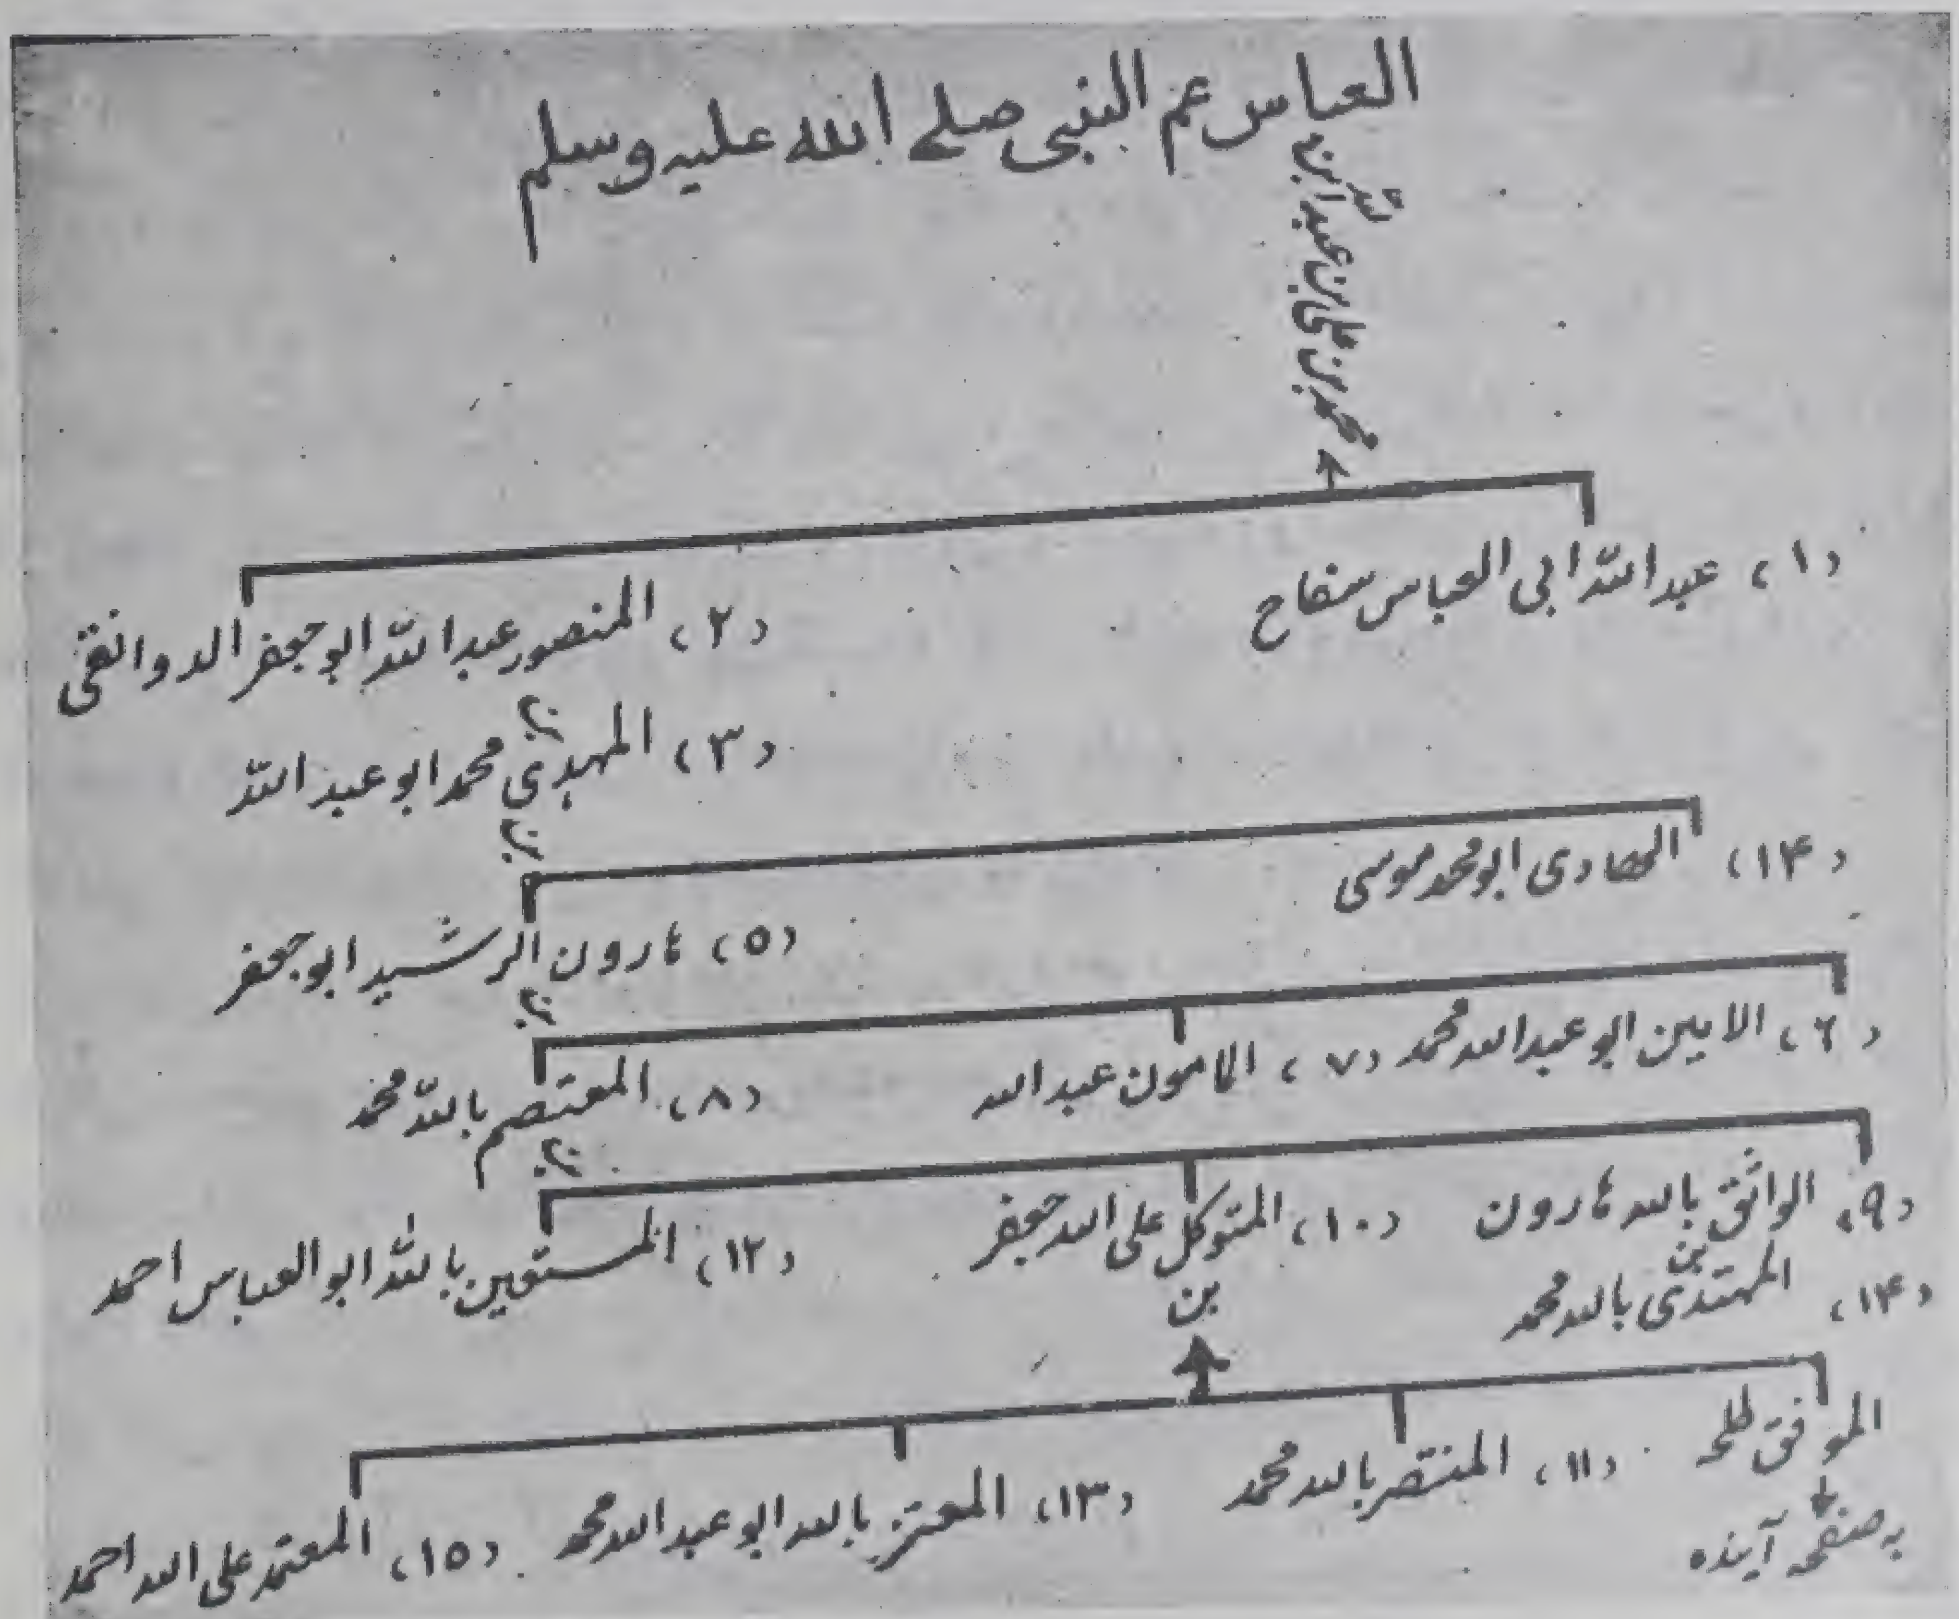 العباس عم النبی صلے اللہ علیہ وسلم
محمد بن علی بن عبد اللہ ابن
(۱) عبد اللہ ابی العباس سفاح
(۲) المنصور عبد اللہ ابو جعفر الدوانقی
بن
(۳) المہدی محمد ابو عبد اللہ
بن
(۱۴) الھادی ابو محمد موسی
(۵) ھارون الرشید ابو جعفر
بن
(۶) الامین ابو عبد اللہ محمد (۷) المامون عبد اللہ
(۸) المعتصم باللہ محمد
بن
(۹) الواثق باللہ ھارون (۱۰) المتوکل علی اللہ جعفر (۱۲) المستعین باللہ ابو العباس احمد
بن
بن
(۱۴) المہتدی باللہ محمد
الموفق طلحہ (۱۱) المنتصر باللہ محمد (۱۳) المعتز باللہ ابو عبد اللہ محمد (۱۵) المعتمد علی اللہ احمد
بہ صفحہ آیندہ